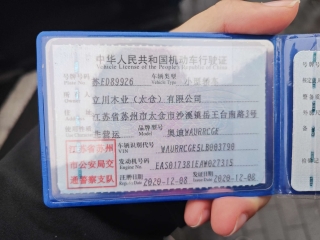 中华人民共和国机动车行驶证
Vehicle License of the People's Republic of China
号牌号码
ED89926
车辆类型
小型
立川木业（太仓）有限公司
江苏省苏州市太仓市沙溪镇岳王台南路3号
非营运
品牌型号
Model
奥迪WAURRCGE
江苏省苏州
市公安局交
通警察支队
车辆识别代号
VIN
发动机号码
Engine No.
注册日期
Register Date
2020-12-08
发证日期
Issue Date
2020-12-08